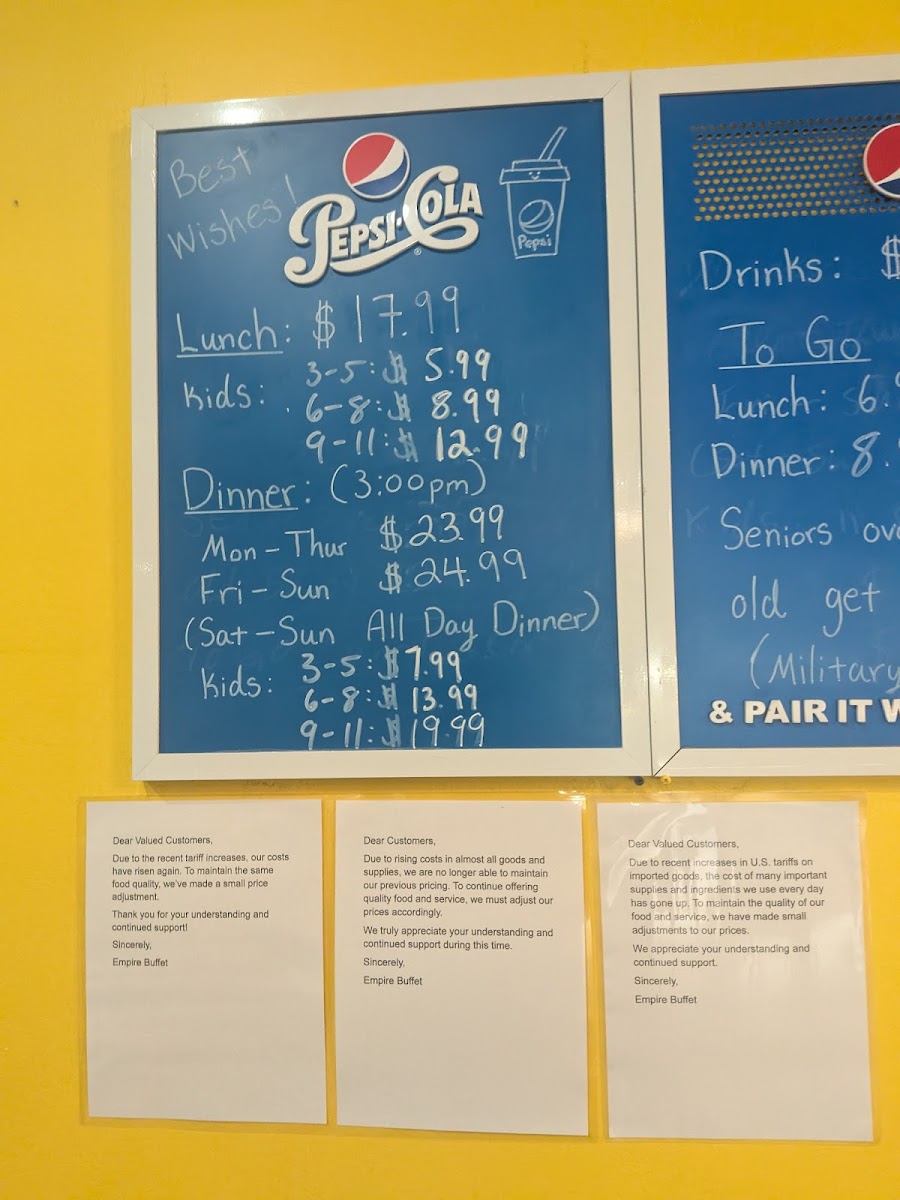 Best
Wishes!
PEPSI-COLA
Pepsi
Lunch: $17.99
Kids: 3-5: $ 5.99
6-8: $ 8.99
9-11: $ 12.99
Dinner: (3:00pm)
Mon-Thur $23.99
Fri-Sun $24.99
(Sat-Sun All Day Dinner)
Kids: 3-5: $7.99
6-8: $ 13.99
9-11: $ 19.99
Drinks: $
To Go
Lunch: 6.
Dinner: 8.
Seniors
old get
(Military
& PAIR IT
Dear Valued Customers,
Due to the recent tariff increases, our costs
have risen again. To maintain the same
food quality, we've made a small price
adjustment.
Thank you for your understanding and
continued support!
Sincerely,
Empire Buffet
Dear Customers,
Due to rising costs in almost all goods and
supplies, we are no longer able to maintain
our previous pricing. To continue offering
quality food and service, we must adjust our
prices accordingly.
We truly appreciate your understanding and
continued support during this time.
Sincerely,
Empire Buffet
Dear Valued Customers,
Due to recent increases in U.S. tariffs on
imported goods, the cost of many important
supplies and ingredients we use every day
has gone up. To maintain the quality of our
food and service, we have made small
adjustments to our prices.
We appreciate your understanding and
continued support.
Sincerely,
Empire Buffet